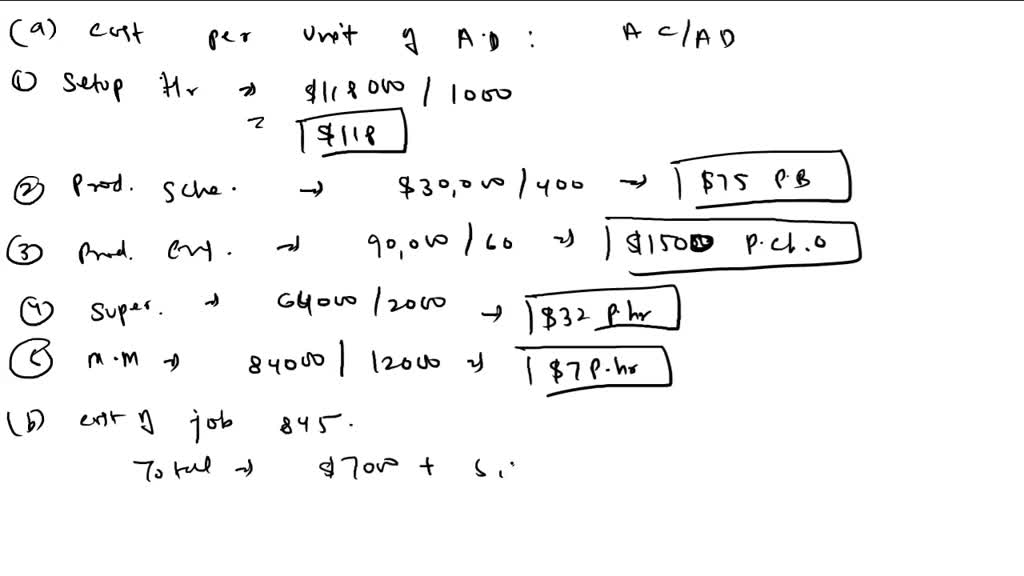 (a) cost per unit of A.D : AC/AD
① Setup Hr → $118000 / 1000
= $118
② Prod. Sche. → $30,000 / 400 → $75 P.B
③ Prod. → 90,000 / 60 ⇒ $1500 P.ch.o
④ Super. → 64000 / 2000 → $32 P.hr
⑤ M.M → 84000 / 12000 ⇒ $7 P.hr
(b) cost of job 845.
Total → $7000 +